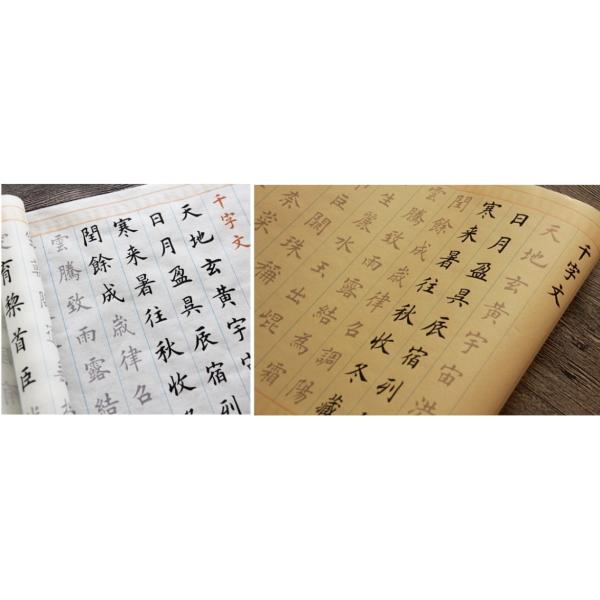 千字文
天地玄黄宇
日月盈昃辰宿列
寒来暑往秋收
閏餘成歲律召
雲騰致雨露結
育黎首臣
千字文
天地玄黄宇宙洪
日月盈昃辰宿列
寒来暑往秋收冬藏
閏餘成歲律召調陽
致雨露結為霜
生麗水玉出崐
巨闕珠稱
柰菜